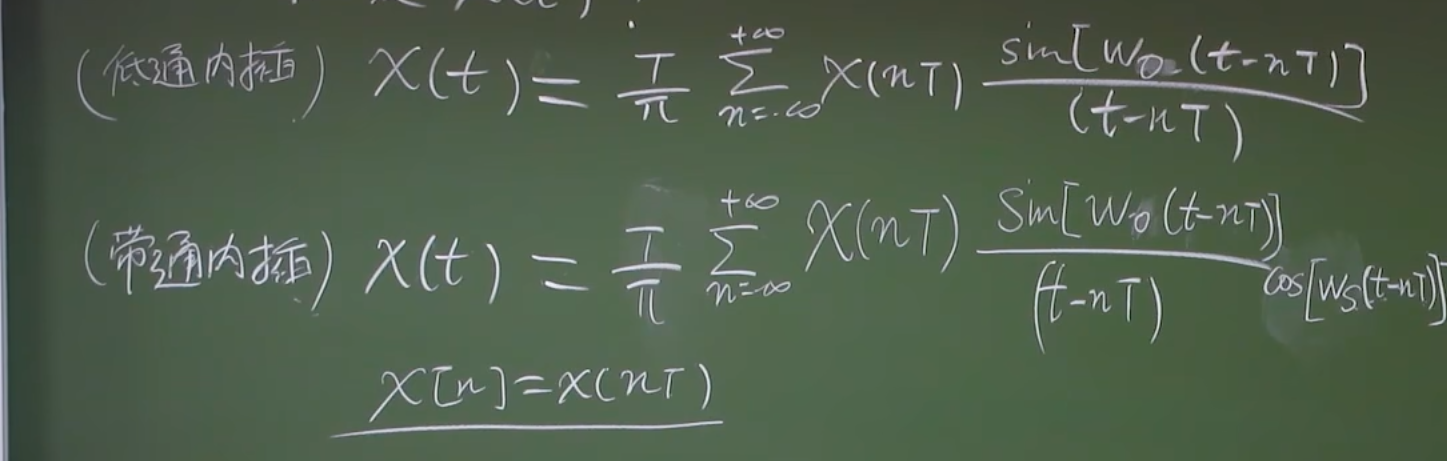 (低通内插) x(t) = T/π ∑_{n=-∞}^{+∞} x(nT) sin[ω₀(t-nT)]/(t-nT)
(带通内插) x(t) = T/π ∑_{n=-∞}^{+∞} x(nT) sin[ω₀(t-nT)]/(t-nT) cos[ωs(t-nT)]
x[n]=x(nT)